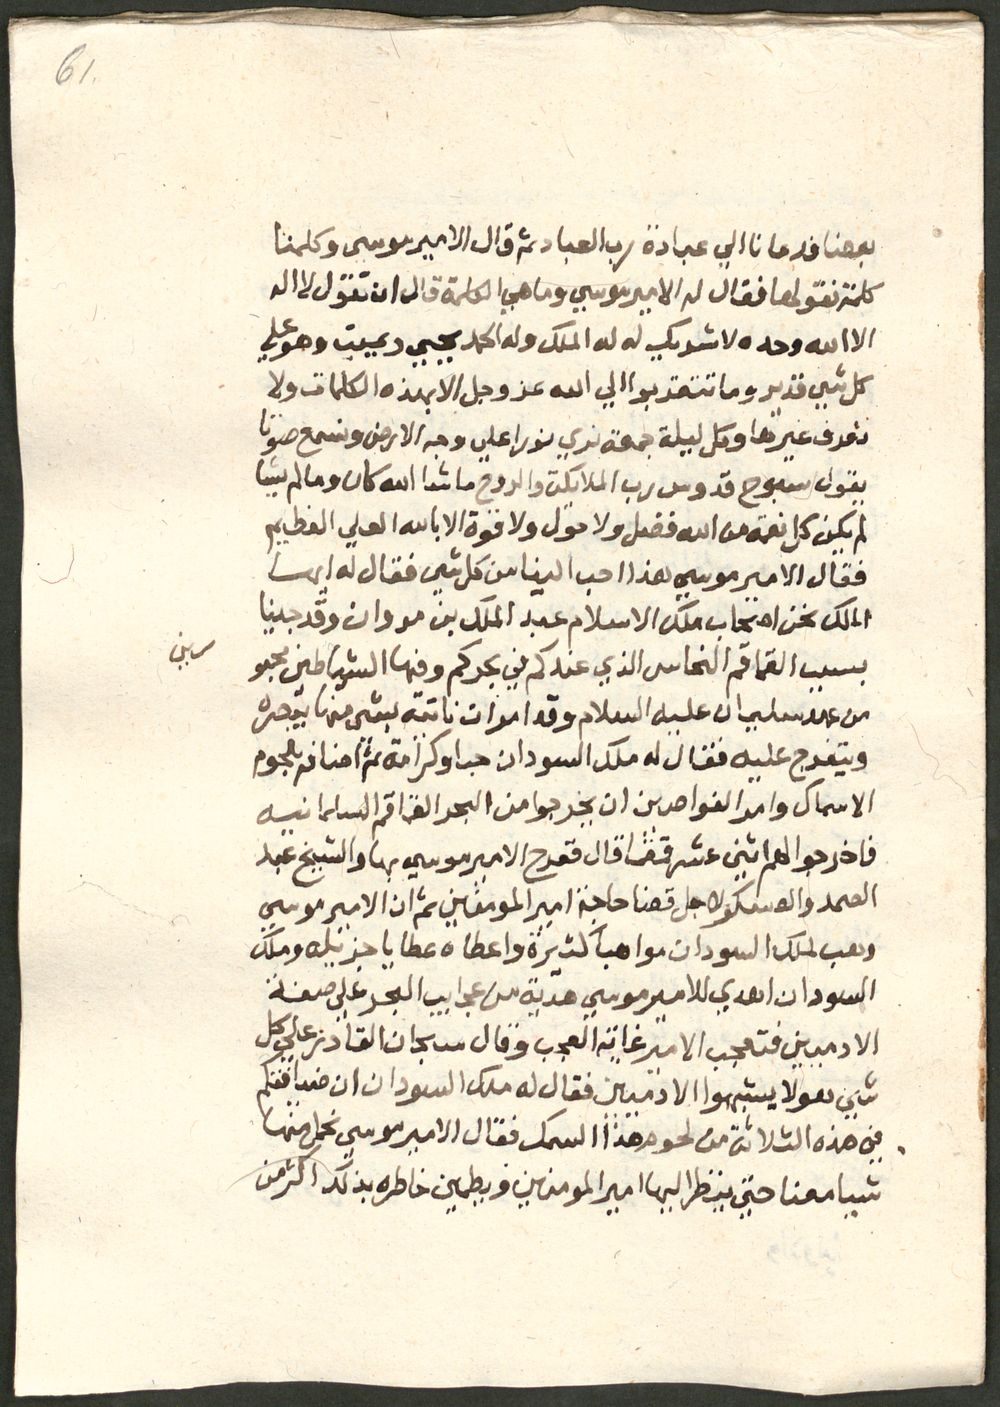 61.
بعضنا فدعانا الي عبادة رب العباد ثم قال الامير موسى وكلمنا
كلمة نقولها فقال له الامير موسي وما هي الكلمة قال ان تقول لا اله
الا الله وحده لا شريك له له الملك وله الحمد يحيي ويميت وهو علي
كل شي قدير وما نتقربوا الي الله عز وجل الا بهذه الكلمات ولا
نعرف غيرها وكل ليلة جمعة نري نورا علي وجه الارض ونسمع صوتا
يقول سبوح قدوس رب الملايكة والروح ما شا الله كان وما لم يشا
لم يكن كل نعمة من الله فضل ولا حول ولا قوة الا بالله العلي العظيم
فقال الامير موسي هذا احب الينا من كل شي فقال له ايها
الملك نحن اصحاب ملك الاسلام عبد الملك بن مروان وقد جينا
بسبب القماقم النحاس الذي عندكم في بحركم وفيها الشياطين محبو
سين
من عهد سليمان عليه السلام وقد امر ان ناتيه بشي منها يبصره
ويتفرج عليه فقال له ملك السودان حبا وكرامة ثم اضافه بلحوم
الاسماك وامر الغواصين ان يخرجوا من البحر القماقم السليمانيه
فاخرجوا لهم اثني عشر قمقما قال ففرح الامير موسي بها والشيخ عبد
الصمد والعسكر لاجل قضا حاجة امير المومنين ثم ان الامير موسي
وهب لملك السودان مواهبا كثيرة واعطاه عطايا جزيله وملك
السودان اهدي للامير موسي هدية من عجايب البحر علي صفة
الادميين فتعجب الامير غاية العجب وقال سبحان القادر علي كل
شي هولا يشبهوا الادميين فقال له ملك السودان ان ضيافتكم
في هذه الثلاثة من لحوم هذا السمك فقال الامير موسي نحمل منها
شيا معنا حتي ينظر اليها امير المومنين ويطمين خاطره بذلك اكثر من